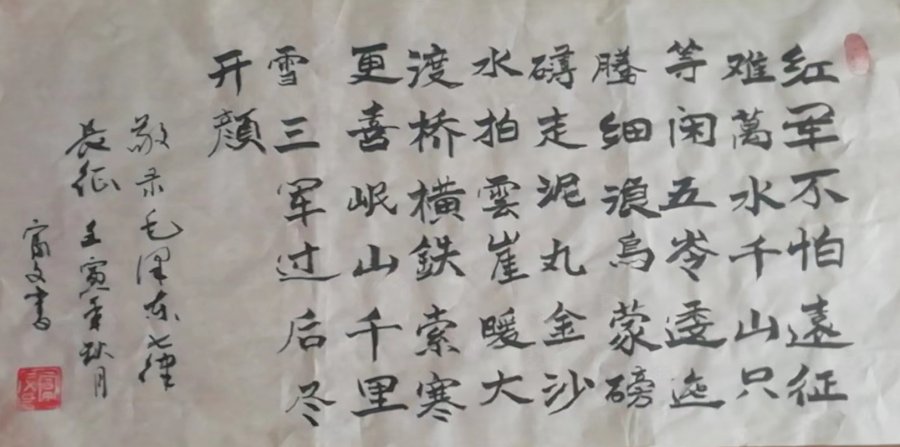 红军不怕遠征
难萬水千山只
等闲五岺逶迤
腾细浪烏蒙磅
礴走泥丸金沙
水拍雲崖暖大
渡桥横鉄索寒
更喜岷山千里
雪三军过后尽
开颜
敬录毛泽东七律
长征 壬寅年秋月
富文書